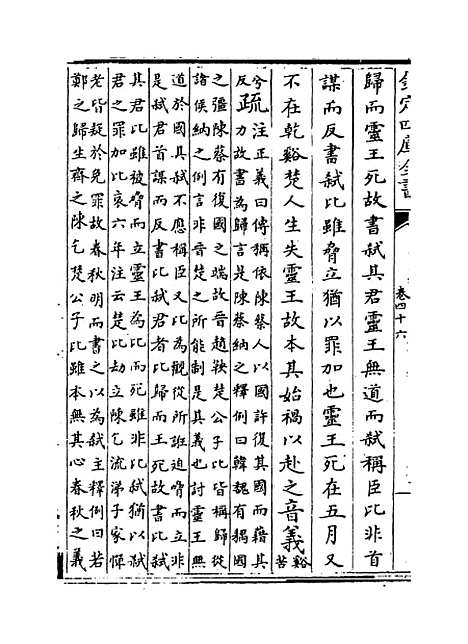 欽定四庫全書
卷四十六
歸而靈王死故書弒其君靈王無道而弒稱臣比非首
謀而反書弒比雖脅立猶以罪加也靈王死在五月又
不在乾谿楚人生失靈王故本其始禍以赴之音義谿苦
兮反疏注正義曰傳稱依陳蔡人以國許復其國而藉其
力故書為歸言是陳蔡納之釋例曰韓魏有耦國
之彊陳蔡有復國之端故晉趙鞅楚公子比皆稱歸從
諸侯納之例言非晉楚之所能制是其義也討靈王無
道於國其弒不應稱臣又比為觀從所誑迫脅而立非
是弒君首謀而反書比弒君者比歸而王死故書比弒
其君比雖被脅而立靈王為比而死雖非比弒猶以弒
君之罪加比哀六年注云楚比劫立陳乞流涕子家憚
老皆疑於免罪故春秋明而書之以為弒主釋例曰若
鄭之歸生齊之陳乞楚公子比雖本無其心春秋之義